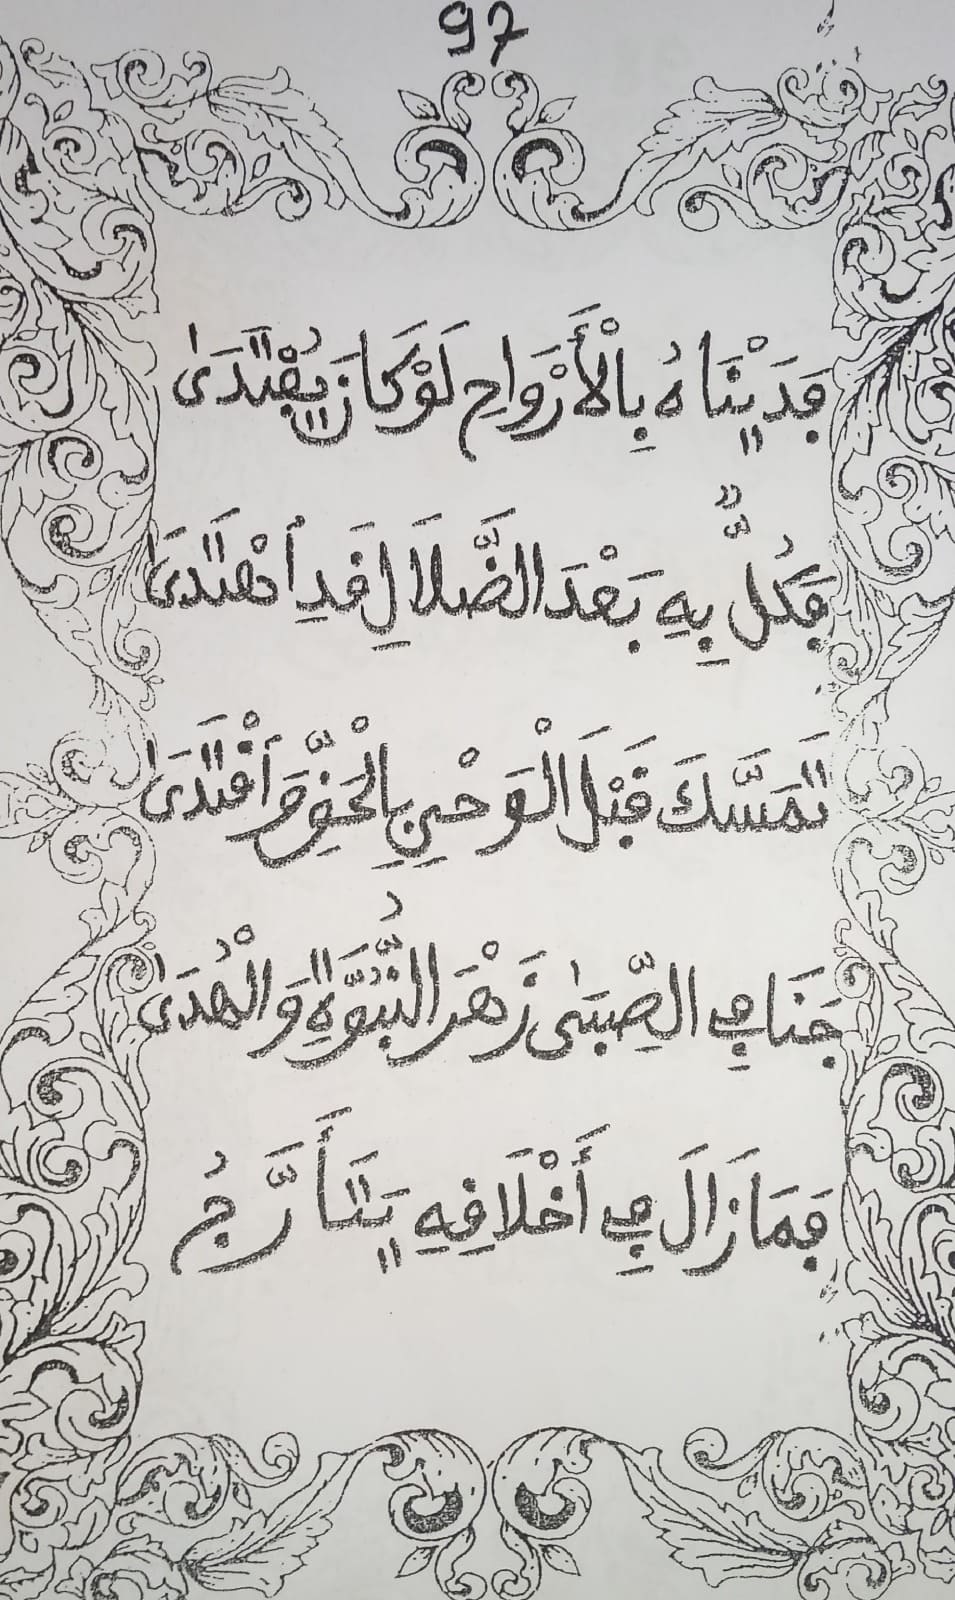 97
فَدَيْنَاهُ بِالْأَرْوَاحِ لَوْ كَانَ يُفْتَدَىٰ
فَكُلٌّ بِهِ بَعْدَ الضَّلَالِ قَدِ اهْتَدَىٰ
تَمَسَّكَ قَبْلَ الْوَحْيِ بِالْحَقِّ وَاقْتَدَىٰ
جَنَا فِي الصِّبَىٰ زَهْرَ النُّبُوَّةِ وَالْهُدَىٰ
فَمَا زَالَ فِي أَخْلَاقِهِ يَتَأَرَّجُ